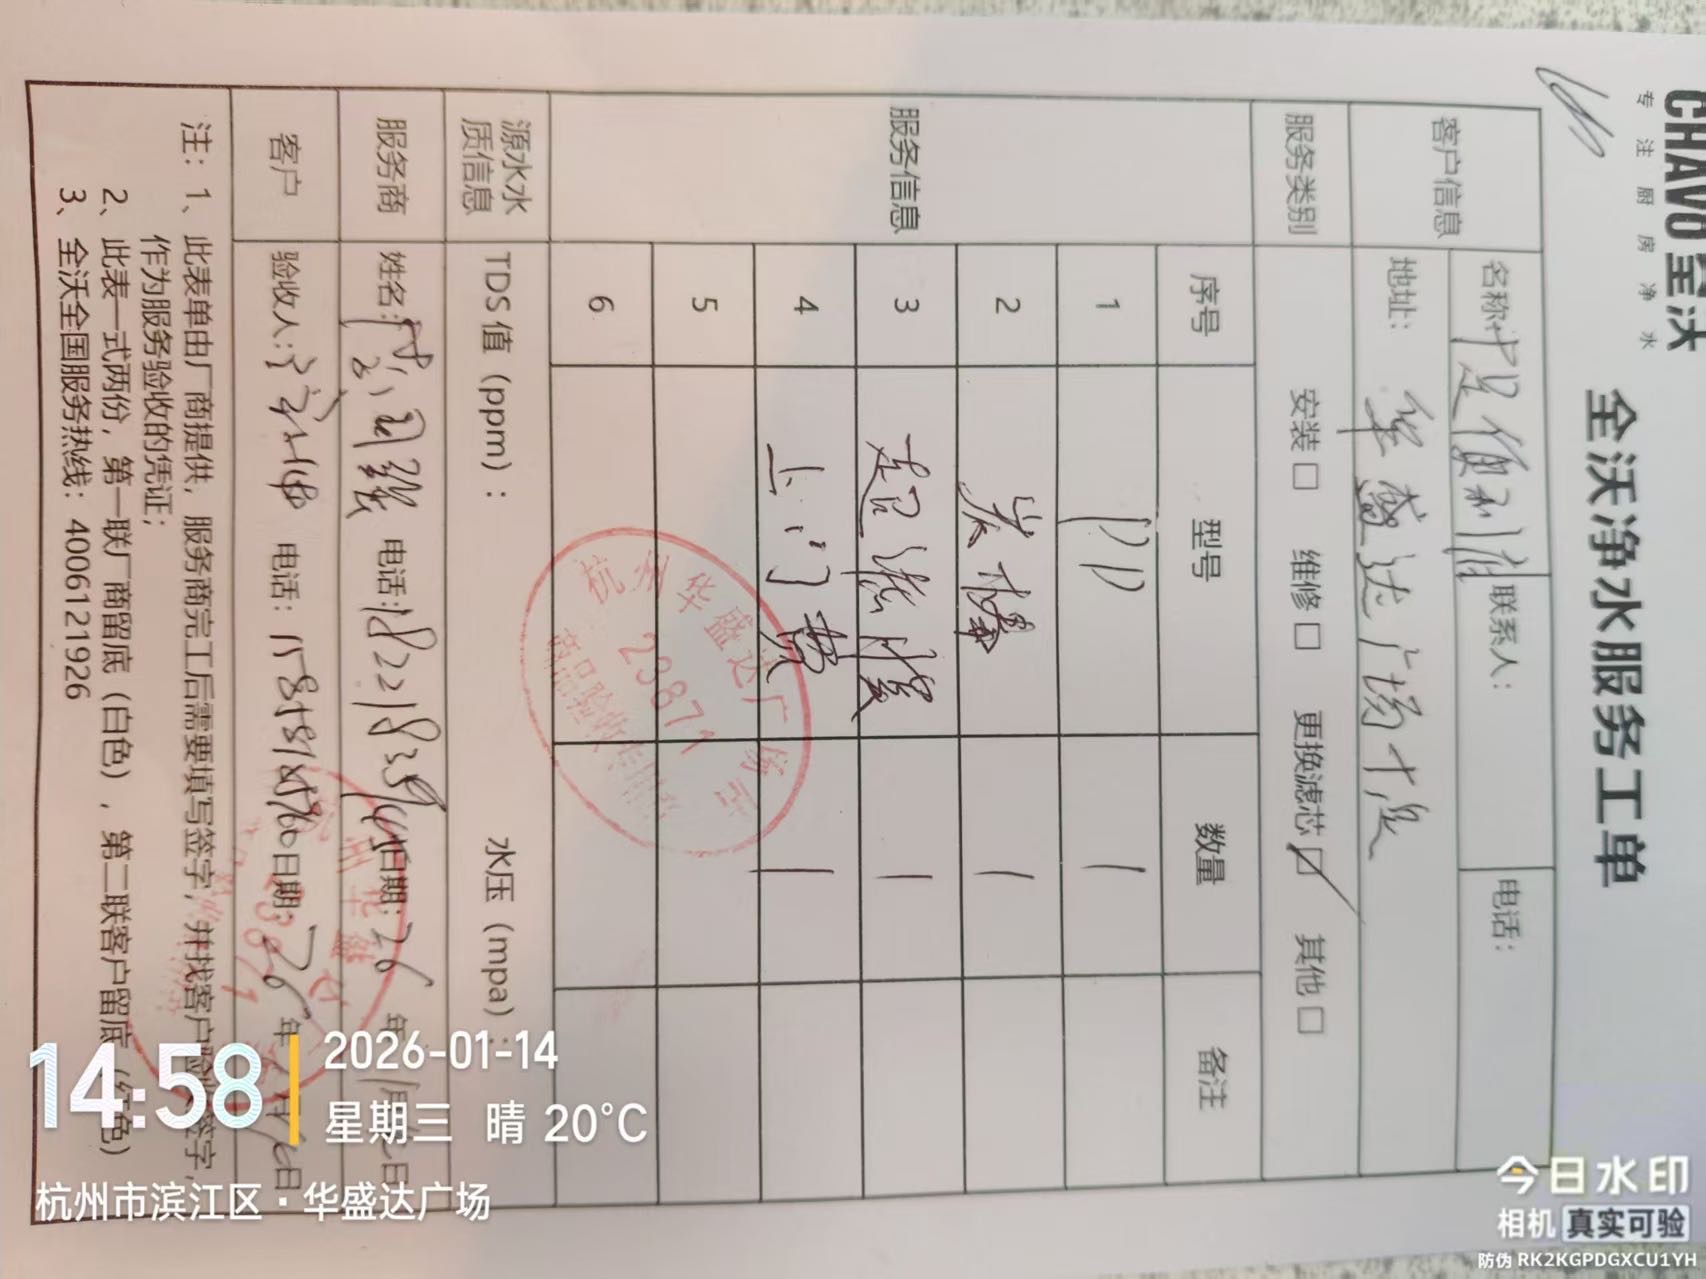 CHAVO全沃
专注厨房净水
全沃净水服务工单
客户信息
名称:
联系人:
电话:
地址: 华盛达广场十足
服务类别
安装□ 维修□ 更换滤芯☑ 其他□
服务信息
序号 型号 数量 备注
1 PP 1
2 炭棒 1
3 超滤膜 1
4 上门费 1
5
6
源水水质信息
TDS 值（ppm）: 水压（mpa）:
服务商
姓名: 电话: 日期: 26年1月 日
客户
验收人: 电话: 日期: 26年 月 日
注: 1、此表单由厂商提供，服务商完工后需要填写签字，并找客户验收签字，
作为服务验收的凭证;
2、此表一式两份，第一联厂商留底（白色），第二联客户留底（红色）
3、全沃全国服务热线: 4006121926
杭州华盛达广场
23871
商品验收专用章
14:58
2026-01-14
星期三 晴 20°C
杭州市滨江区·华盛达广场
今日水印
相机 真实可验
防伪 RK2KGPDGXCU1YH